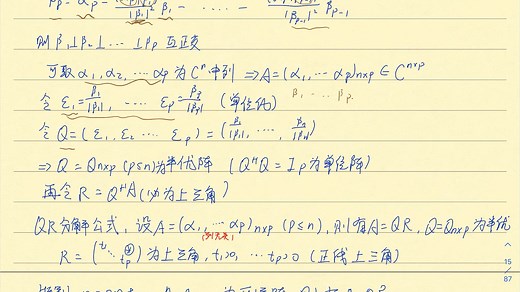 βp = αp - ... β1 - ... - ... /|βp-1|² βp-1
则 β1⊥β2⊥ … ⊥βp 互正交
可取 α1, α2, … αp 为 Cⁿ 中列 ⇒ A = (α1, … αp)n×p ∈ Cⁿˣᵖ
令 ε1 = β1/|β1|, … εp = βp/|βp| (单位化) β1 … βp
令 Q = (ε1, ε2 … εp) = (β1/|β1|, …, βp/|βp|)
⇒ Q = Qn×p (p≤n) 为半优阵 (QᴴQ = Ip 为单位阵)
再令 R = QᴴA (必为上三角)
QR分解公式, 设 A = (α1, … αp)n×p (p≤n), 则有 A = QR, Q = Qn×p 为半优
列无关!
R = (t1 ⋱ tp *) 为上三角, t1>0, … tp>0 (正线上三角)
15
87